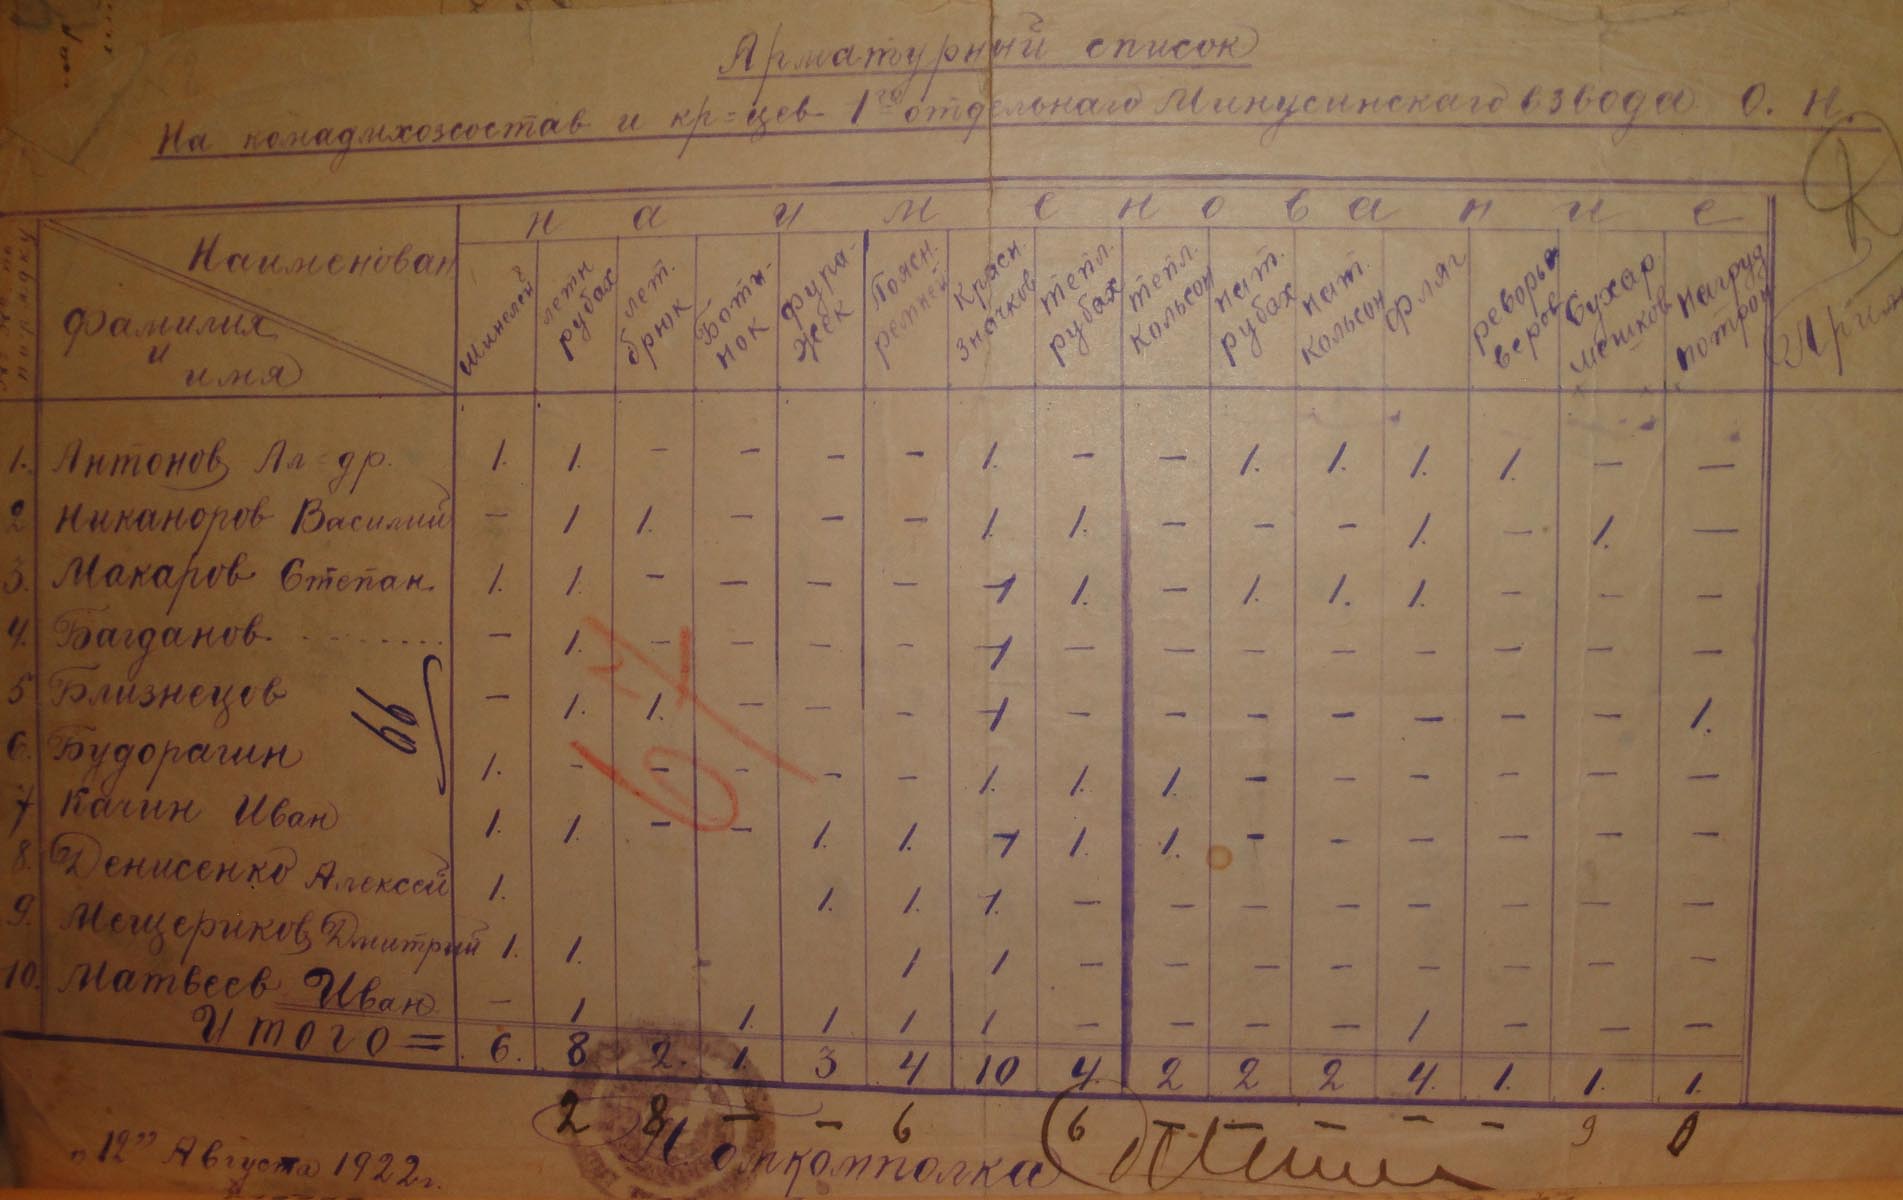 Арматурный список
На комадмхозсостав и кр=цев 1го отдельнаго Минусинскаго взвода О. Н.
№ № по порядку
Наименован
Фамилия и имя
н а и м е н о в а н и е
шинелей | летн рубах | лет. брюк | Боти-нок | Фура-жек | Поясн. ремней | Красн. значков | тепл. рубах | тепл. кольсон | нат. рубах | нат. кольсон | фляг | револь-веров | Сухар. мешков | Нагруд потрон
1. Антонов Ал=др. 1. 1. – – – – 1. – – 1. 1. 1. 1. – –
2 Никаноров Василий – 1 1. – – – 1. 1. – – – 1. – 1. –
3. Макаров Степан. 1. 1. – – – – 1 1. – 1. 1. 1. – – –
4. Багданов. – 1. – – – – 1 – – – – – – – –
5 Близнецов – 1. 1. – – – 1 – – – – – – – 1.
6. Будорагин 1. – – – – – 1. 1. 1. – – – – – –
7 Качин Иван 1. 1. – – 1. 1. 1 1. 1. – – – – – –
8. Денисенко Алексей 1. 1. 1. 1. – – – – – – – –
9. Мещериков Дмитрий 1. 1. 1 1 – – – – – – – –
10. Матвеев Иван – 1 1. 1 1 1 – – – – 1 – – –
Итого = 6. 8 2. 1. 3 4 10 4. 2 2 2 4. 1. 1. 1.
66
67
2 8 – – 6 6 – – – – – 9
„12” Августа 1922г.
Помкомполка